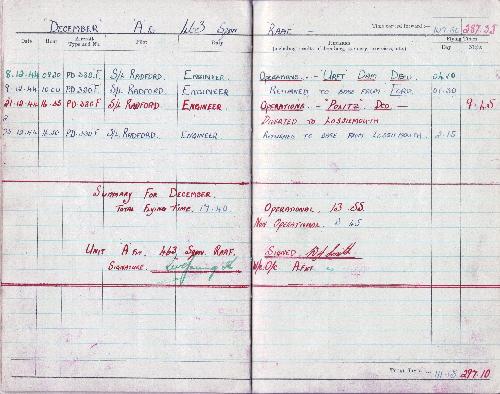 "DECEMBER" A Ft. 463 Sqdn RAAF – Time carried forward :— 287.35
Date Hour Aircraft Type and No. Pilot Duty Remarks (including results of bombing, gunnery, exercises, etc.) Flying Times Day Night
8.12.44 0830 PD 330.F. S/L RADFORD. ENGINEER. OPERATIONS. - "URFT DAM DBLU. 04.10
9.12.44 1000 PD 330 F S/L RADFORD. ENGINEER RETURNED TO BASE FROM FORD. 01.30
21.12.44 16.35 PD 330 F S/L RADFORD ENGINEER OPERATIONS - "POLITZ" DCO – 9.45
DIVERTED TO LOSSIEMOUTH
12.44 PD 330 F S/L RADFORD. ENGINEER RETURNED TO BASE FROM LOSSIEMOUTH 2.15
SUMMARY FOR DECEMBER.
TOTAL FLYING TIME. 17.40 OPERATIONAL. 13.55
NON OPERATIONAL. 3.45
UNIT A Ft. 463 SQDN. RAAF. SIGNED
SIGNATURE. O/C A FHT
TOTAL TIME :— 297.10